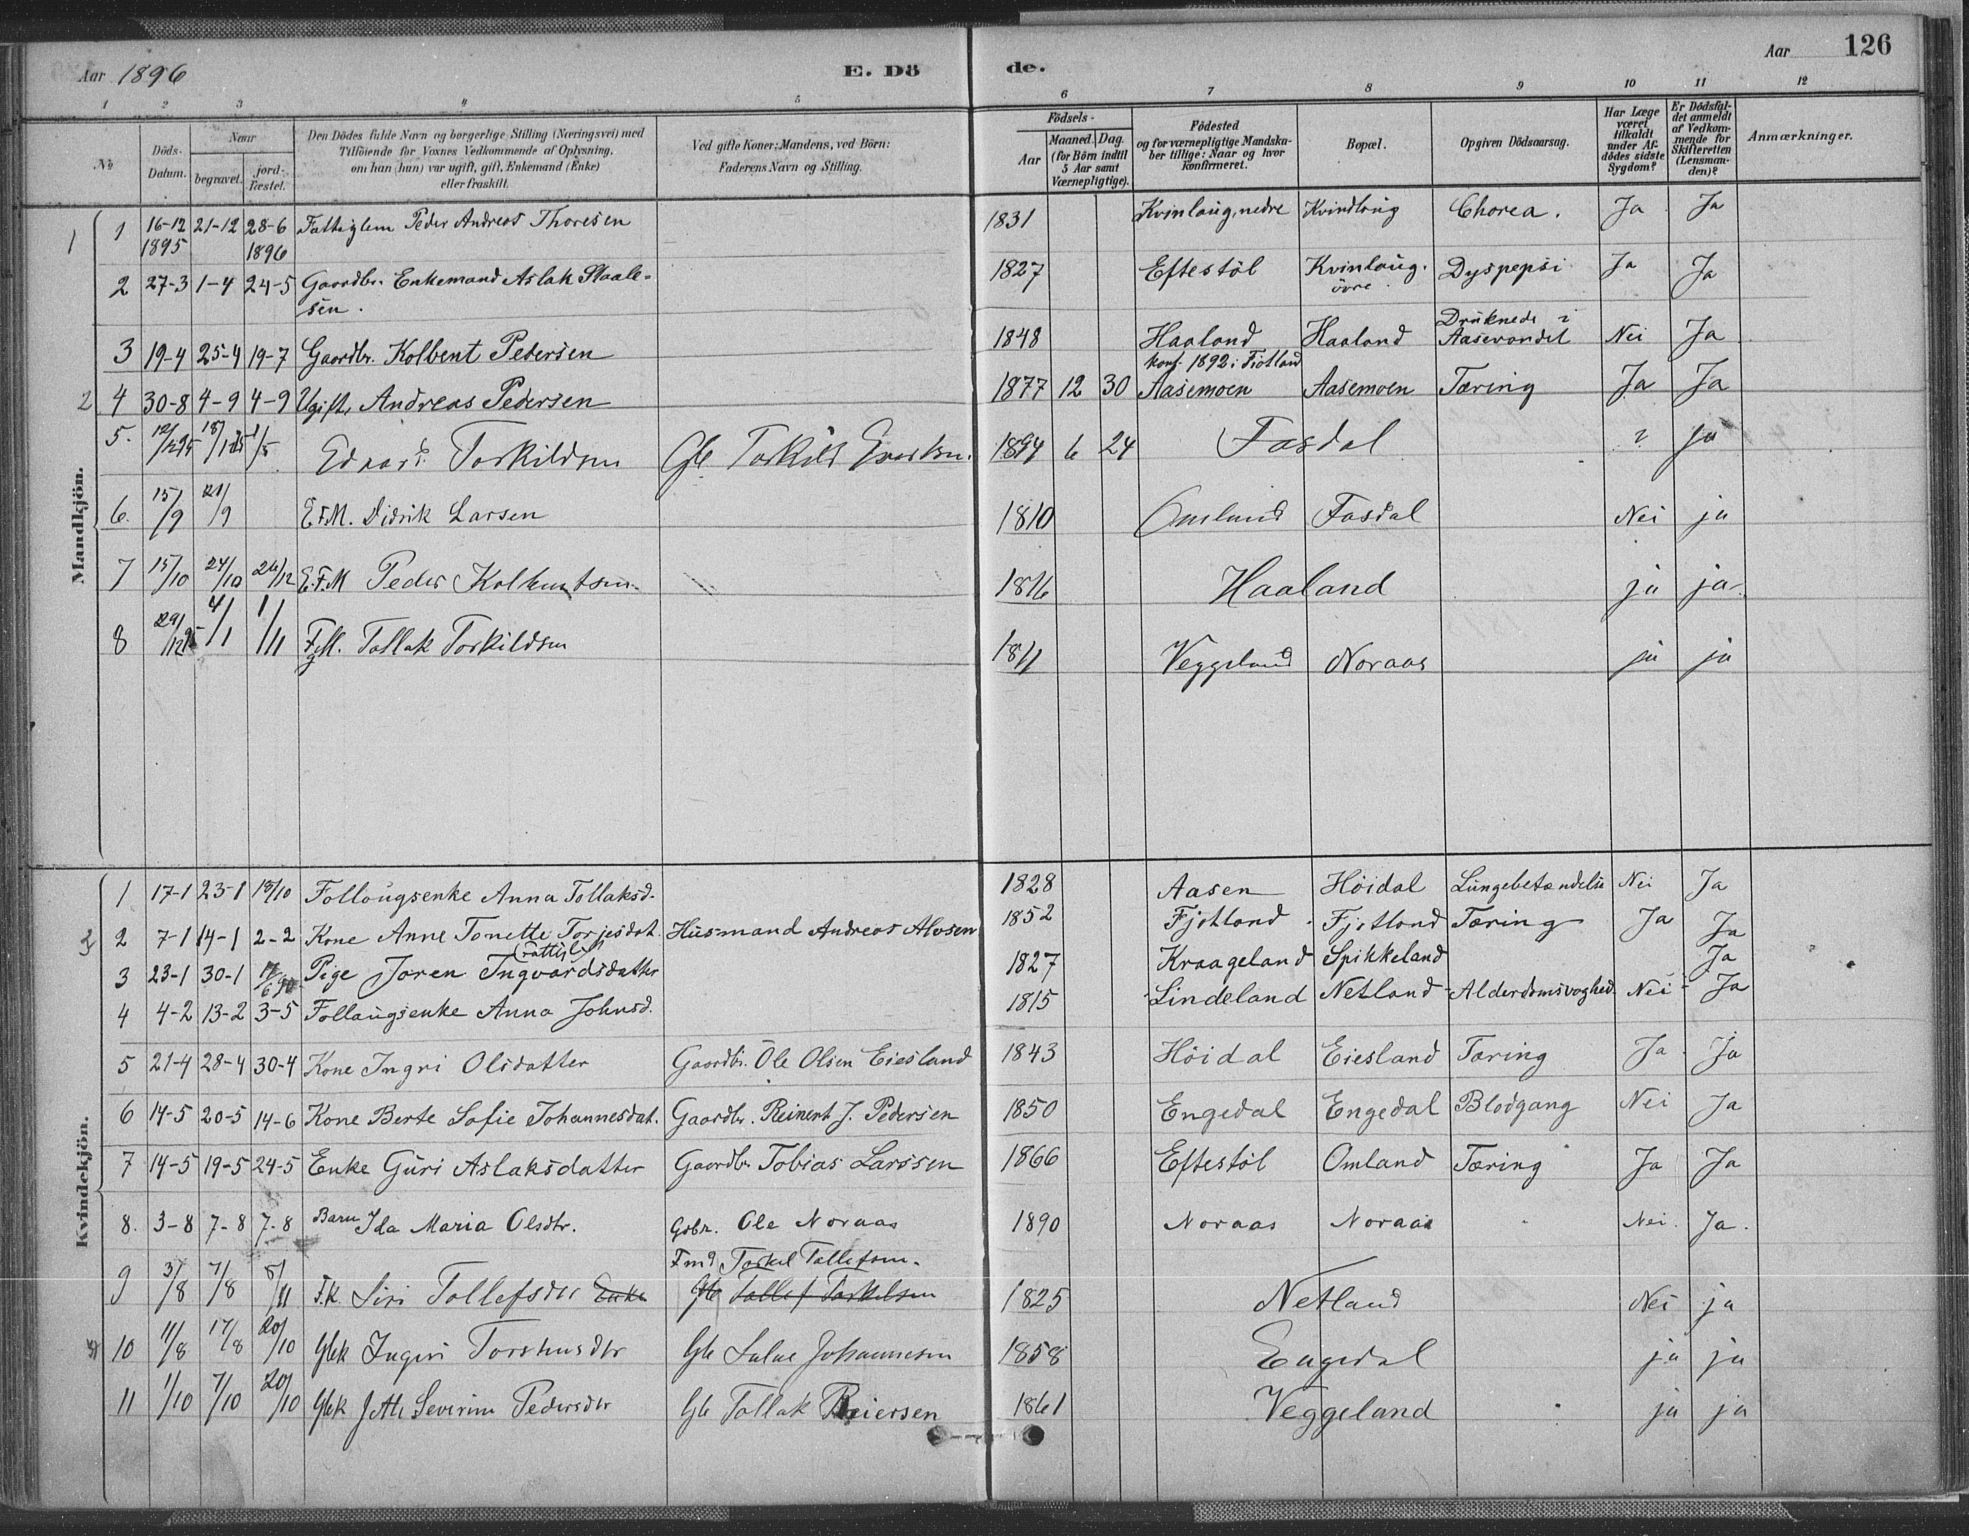 Aar 1896 E. Dö de. Aar 126
1 2 3 4 5 6 7 8 9 10 11 12
№ Döds-Datum. Naar begravet. jord-fæstet. Den Dödes fulde Navn og borgerlige Stilling (Næringsvei) med Tilföiende for Voxnes Vedkommende af Oplysning, om han (hun) var ugift, gift, Enkemand (Enke) eller fraskilt. Ved gifte Koner: Mandens, ved Börn: Faderens Navn og Stilling. Födsels- Aar Maaned. Dag. (for Börn indtil 5 Aar samt Værnepligtige). Födested og for værnepligtige Mandskaber tillige: Naar og hvor konfirmeret. Bopæl. Opgiven Dödsaarsag. Har Læge været tilkaldt under Afdödes sidste Sygdom? Er Dödsfaldet anmeldt af Vedkommende for Skifteretten (Lensmanden)? Anmærkninger.
Mandkjön.
1 16-12 1895 21-12 28-6 1896 Fattiglem Peder Andreas Thoresen 1831 Kvinlaug, nedre Kvindlaug Chorea. Ja Ja
2 27-3 1-4 24-5 Gaardbr. Enkemand Aslak Staalesen. 1827 Eftestöl Kvinlaug. övre. Dyspepsi Ja Ja
3 19-4 25-4 19-7 Gaardbr. Kolbent Pedersen 1848 Haaland Haaland Druknede i Aasevandet Nei Ja
4 30-8 4-9 4-9 Ugift, Andreas Pedersen 1877 12 30 konf. 1892 i Fjotland Aasemoen Aasemoen Tæring Ja Ja
5. 12/12 95 1/5 Torkildsen Gb Torkild 1894 6 24 Fasdal ? ja
6. 15/9 21/9 E.F.M. Didrik Larsen 1810 Omland Fasdal Nei ja
7 15/10 24/10 26/12 E.F.M Peder Kolbentsen 1816 Haaland ja ja
8 29/12 95 4/1 1/11 Tollak Torkildsen 1811 Veggeland Noraas ja ja
Kvindekjön.
1 17-1 23-1 18/10 Follaugsenke Anna Tollaksd. 1828 Aasen Höidal Lungebetændelse Nei Ja
2 7-1 14-1 2-2 Kone Anne Tonette Torjesdat. Husmand Andreas Alvsen 1852 Fjotland Fjotland Tæring Ja Ja
3 23-1 30-1 Pige Joren Ingvardsdatter (fattigl.) 1827 Kraageland Spikkeland Ja
4 4-2 13-2 3-5 Follaugsenke Anna Johnsd. 1815 Lindeland Netland Alderdomsvaghed. Nei Ja
5 21-4 28-4 30-4 Kone Ingri Olsdatter Gaardbr. Ole Olsen Eiesland 1843 Höidal Eiesland Tæring Ja Ja
6 14-5 20-5 14-6 Kone Berte Sofie Johannesdat. Gaardbr. Reinert J. Pedersen 1850 Engedal Engedal Blodgang Nei Ja
7 14-5 19-5 24-5 Enke Guri Aslaksdatter Gaardbr. Tobias Larssen 1866 Eftestöl Omland Tæring Ja Ja
8. 3-8 7-8 7-8 Barn Ida Maria Olsdtr. Gdbr. Ole Noraas 1890 Noraas Noraas Nei. Ja.
9 3/8 7/8 8/11 F.k. Siri Tollefsdtr Enke Fmd Torkel Tollefsen. Gb Tollef Torkelsen 1825 Netland Nei ja
10 11/8 17/8 20/10 Gbk Ingeri Gb Johannesen 1858 Engedal ja ja
11 1/10 7/10 20/10 Gbk Severine Pedersdtr Gb Tollak Reiersen 1861 Veggeland ja ja